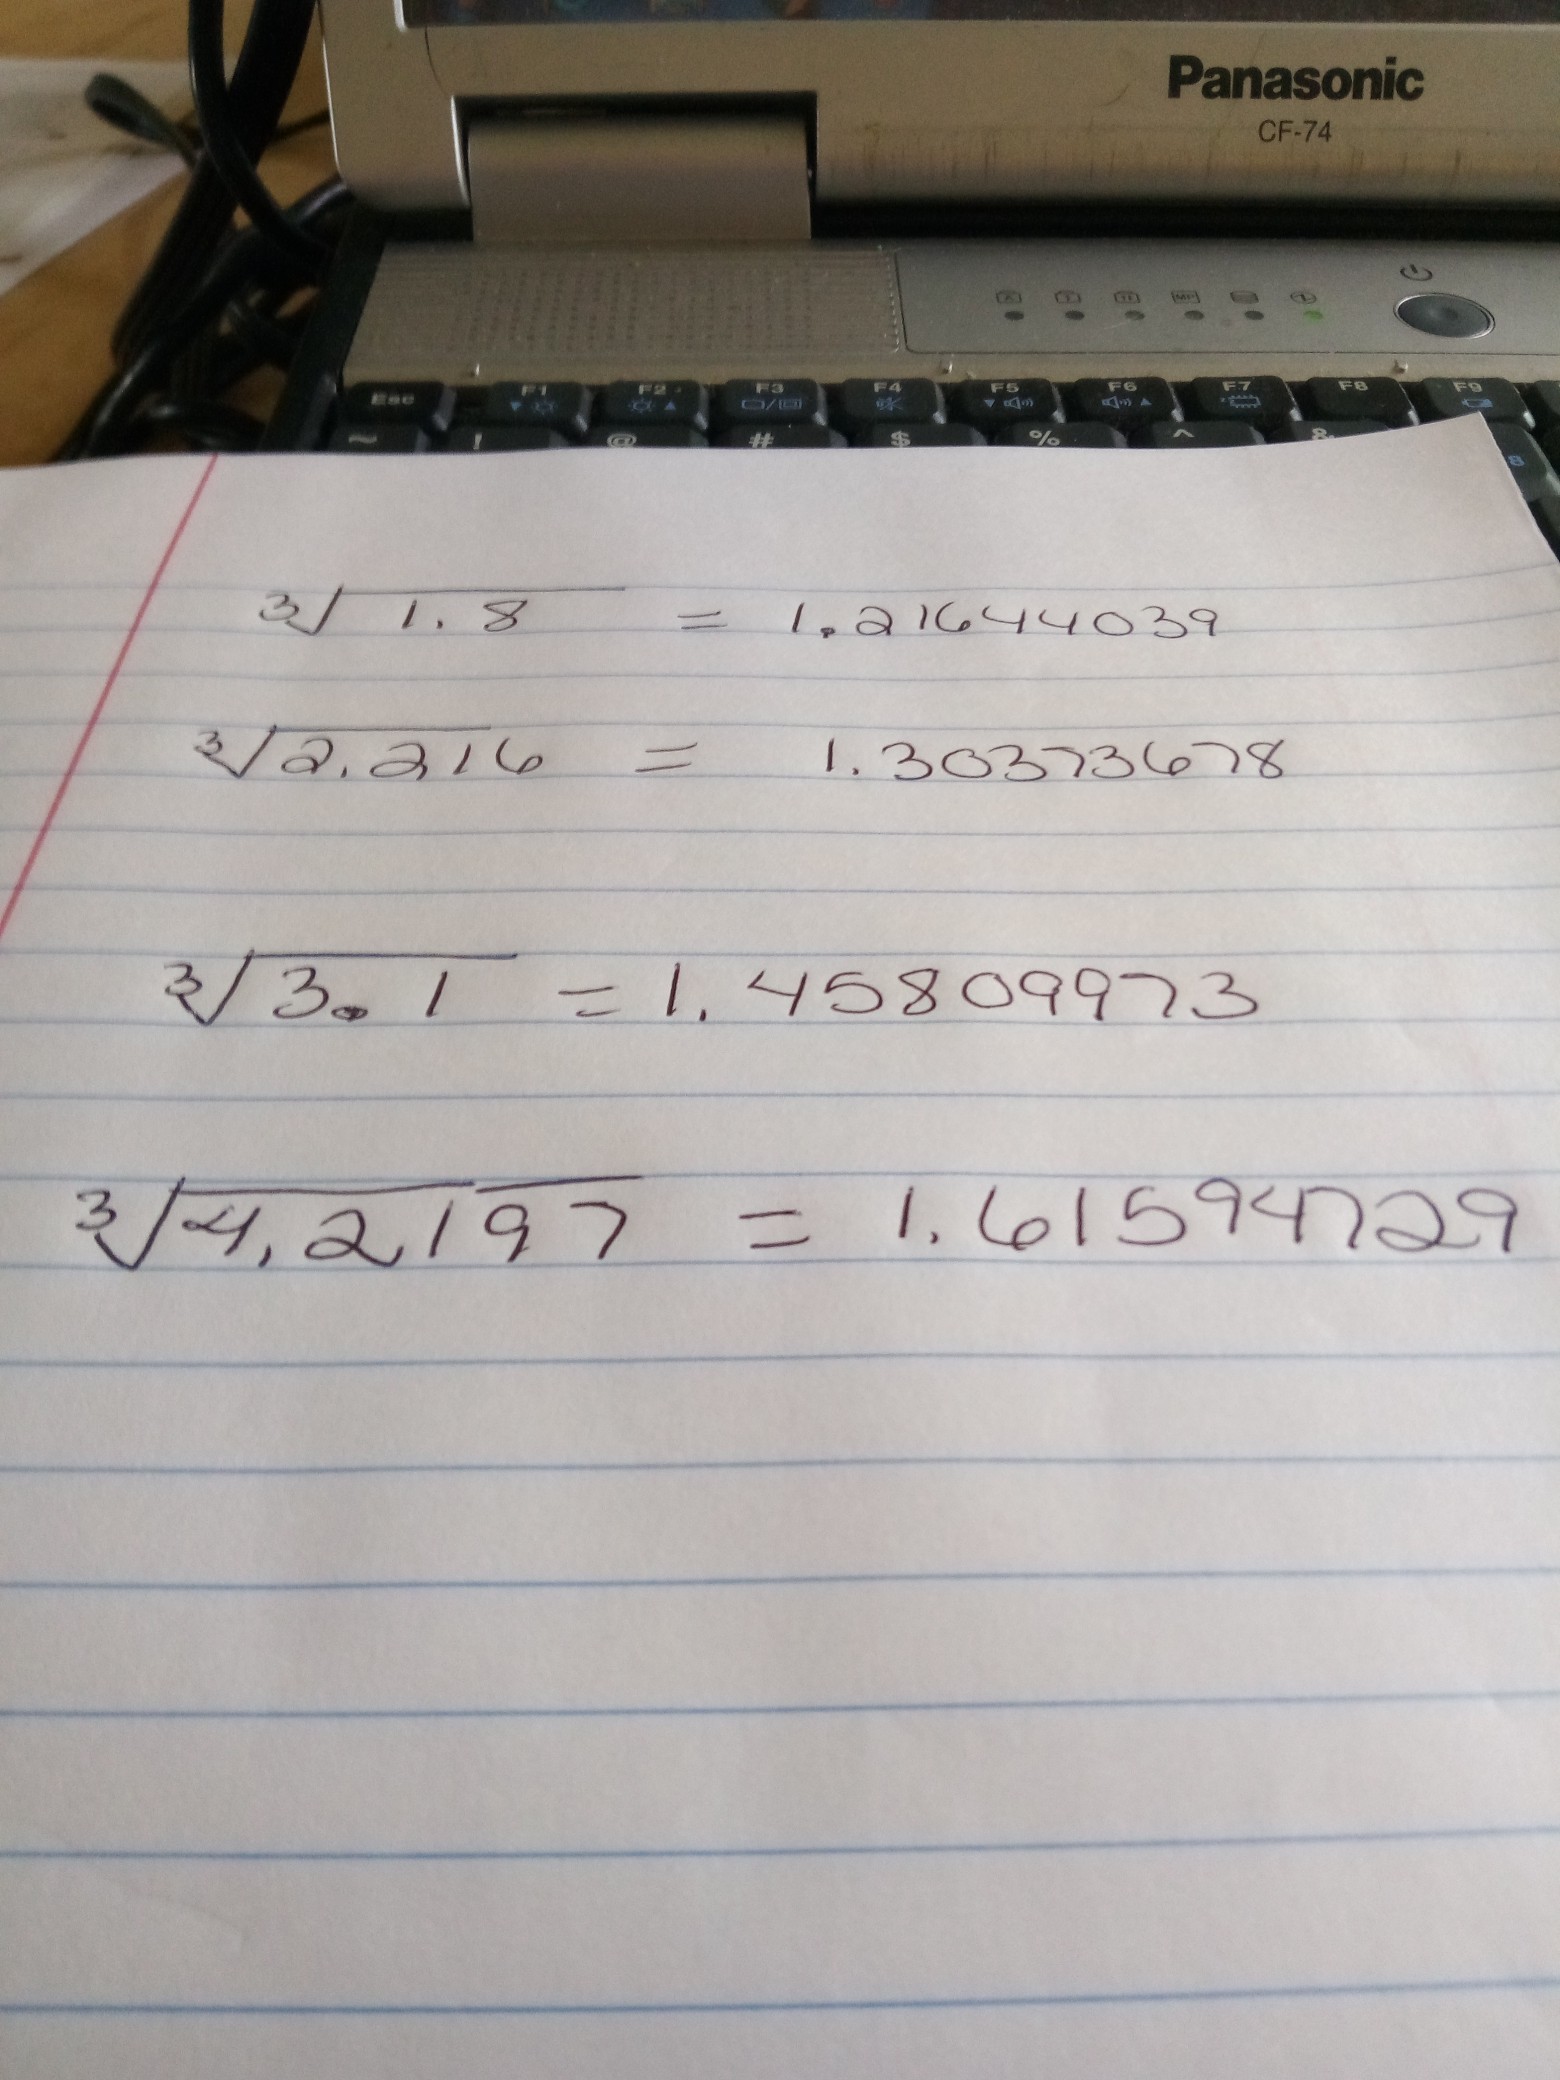 Panasonic
CF-74
MP
Esc F1 F2 F3 F4 F5 F6 F7 F8 F9
~ ! @ # $ % ^ &
8
∛1.8 = 1.21644039
∛2.216 = 1.30373678
∛3.1 = 1.45809973
∛4.2197 = 1.61594729